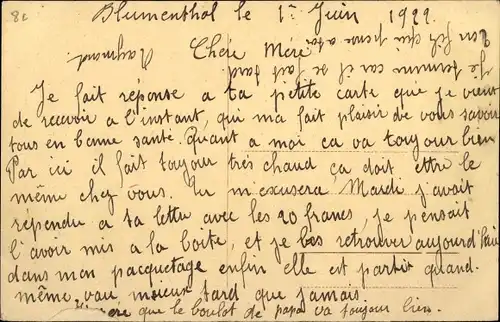 8c
Blumenthal le 1r Juin 1922
Chère Mère
Je termine car il se fait tard
ton fils qui pense a toi
Raymond
Je fait réponse a ta petite carte que je vient
de recevoir a l'instant, qui ma fait plaisir de vous savoir
tous en bonne santé. Quant a moi ca va toujour bien
Par ici il fait toujour très chaud ça doit ettre le
même chez vous. Tu m'exusera Mardi j'avait
répendu a ta lettre avec les 20 francs, je pensait
l'avoir mis a la boite, et je les retrouver aujourd'hui
dans mon pacquetage enfin elle est partit quand.
même, vau mieux tard que jamais
que le boulot de papa va toujour bien.